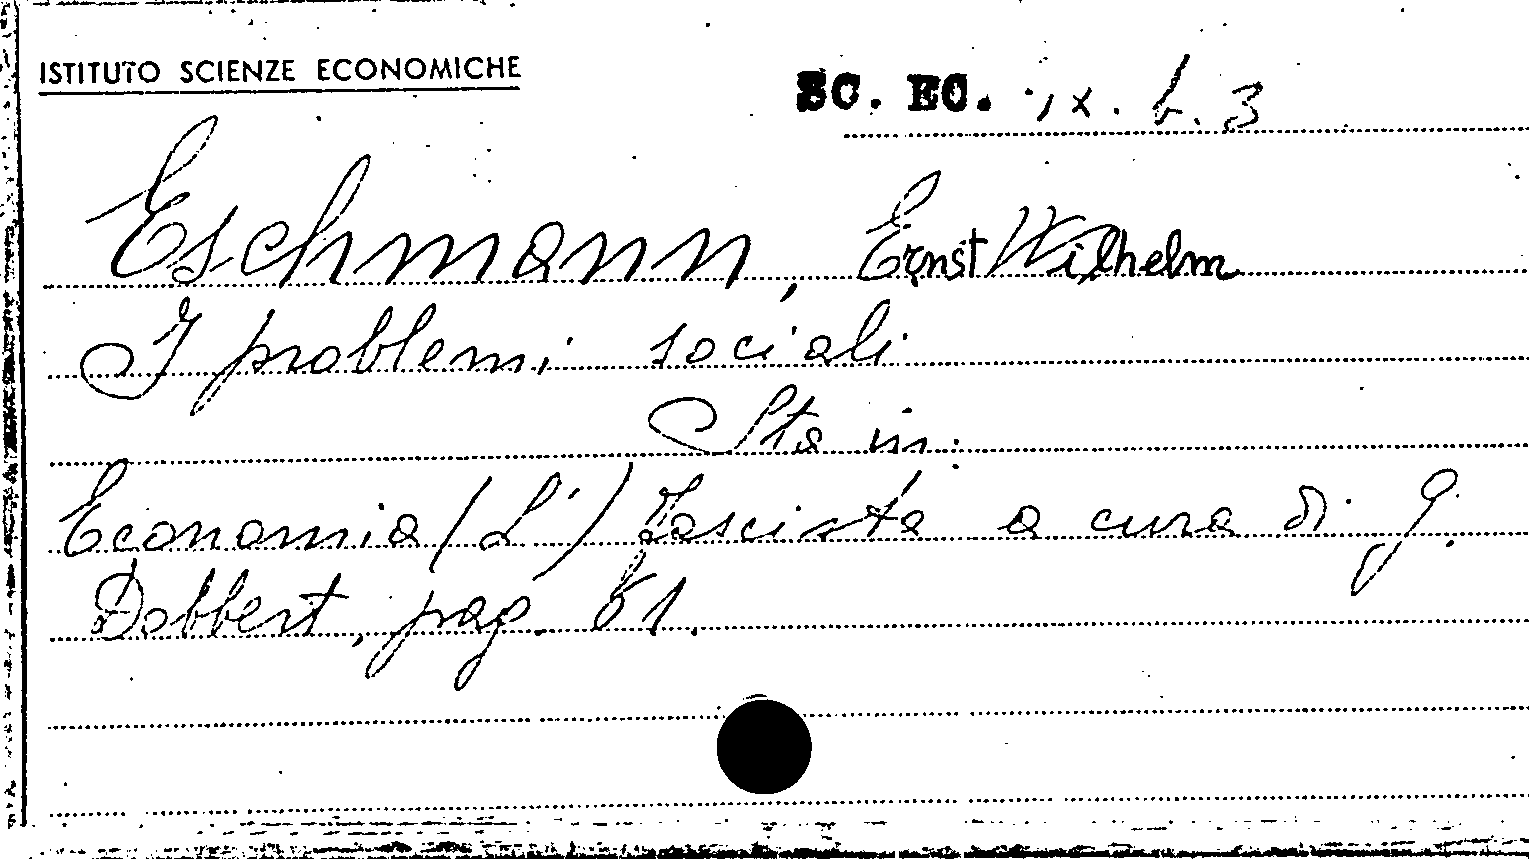 ISTITUTO SCIENZE ECONOMICHE
SC. EC. IX. b. 3
Eschmann, Ernst Wilhelm
I problemi sociali
Sta in:
Economia (L') fascista a cura di G.
Dobbert, pag. 61.